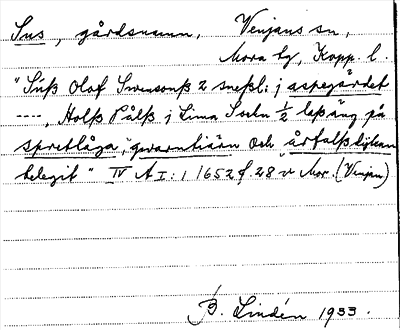 Sus, gårdsnamn, Venjans sn,
Mora tg, Kopp. l.
"Súß Olof Swensonß 2 sneßl: j aspegärdet
----, Holß Pålß j Lima Sochn ½ leß äng på
spretlåga, qwarntiärn och årfalßlijkan
belegit" IV A I:1 1652 f. 28 v Mor. (Venjan)
B. Lindén 1933.